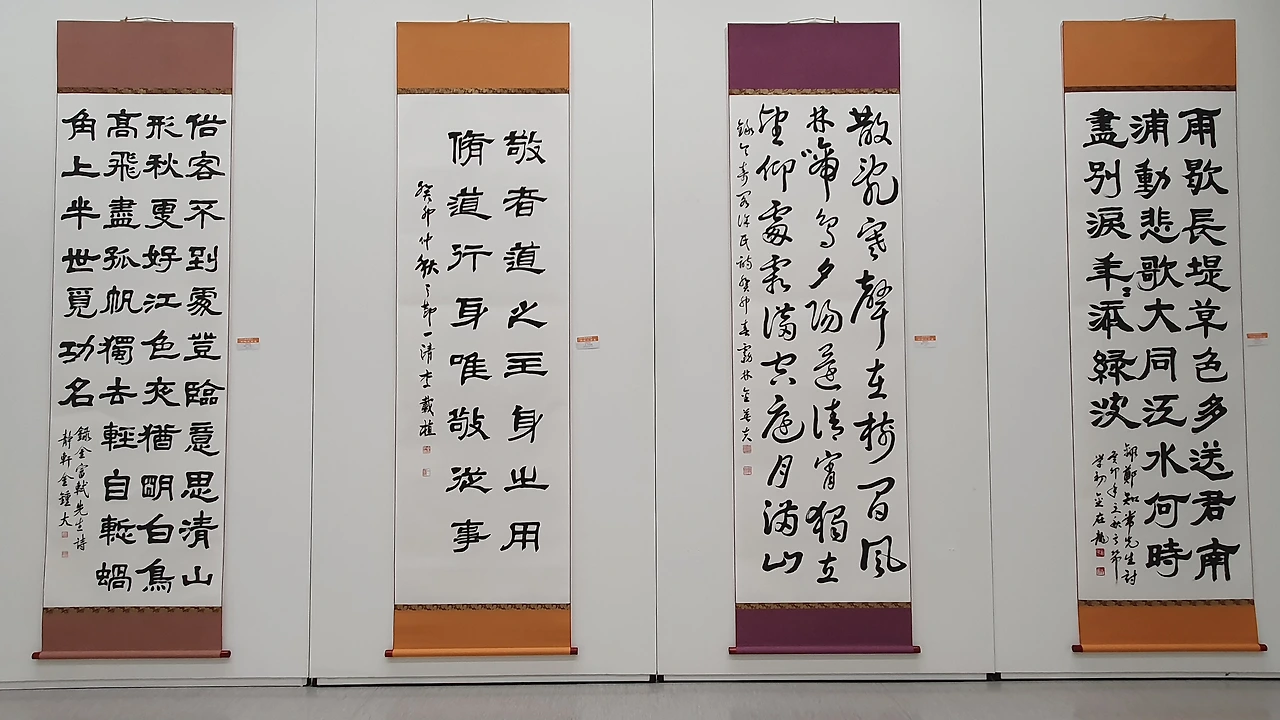 俗客不到處登臨意思清山
形秋更好江色夜猶明白鳥
高飛盡孤帆獨去輕自慙蝸
角上半世覓功名
錄金富軾先生詩
靜軒金鍾大
敬者道之主身之用
脩道行身唯敬從事
癸卯仲秋之節一清李載植
散亂寒聲在樹間風
林啼鳥夕陽還清宵獨立
仰處霜滿空庭月滿山
雨歇長堤草色多送君南
浦動悲歌大同江水何時
盡別淚年〻添綠波
錄鄭知常先生詩
癸卯年立秋之節
金在龍